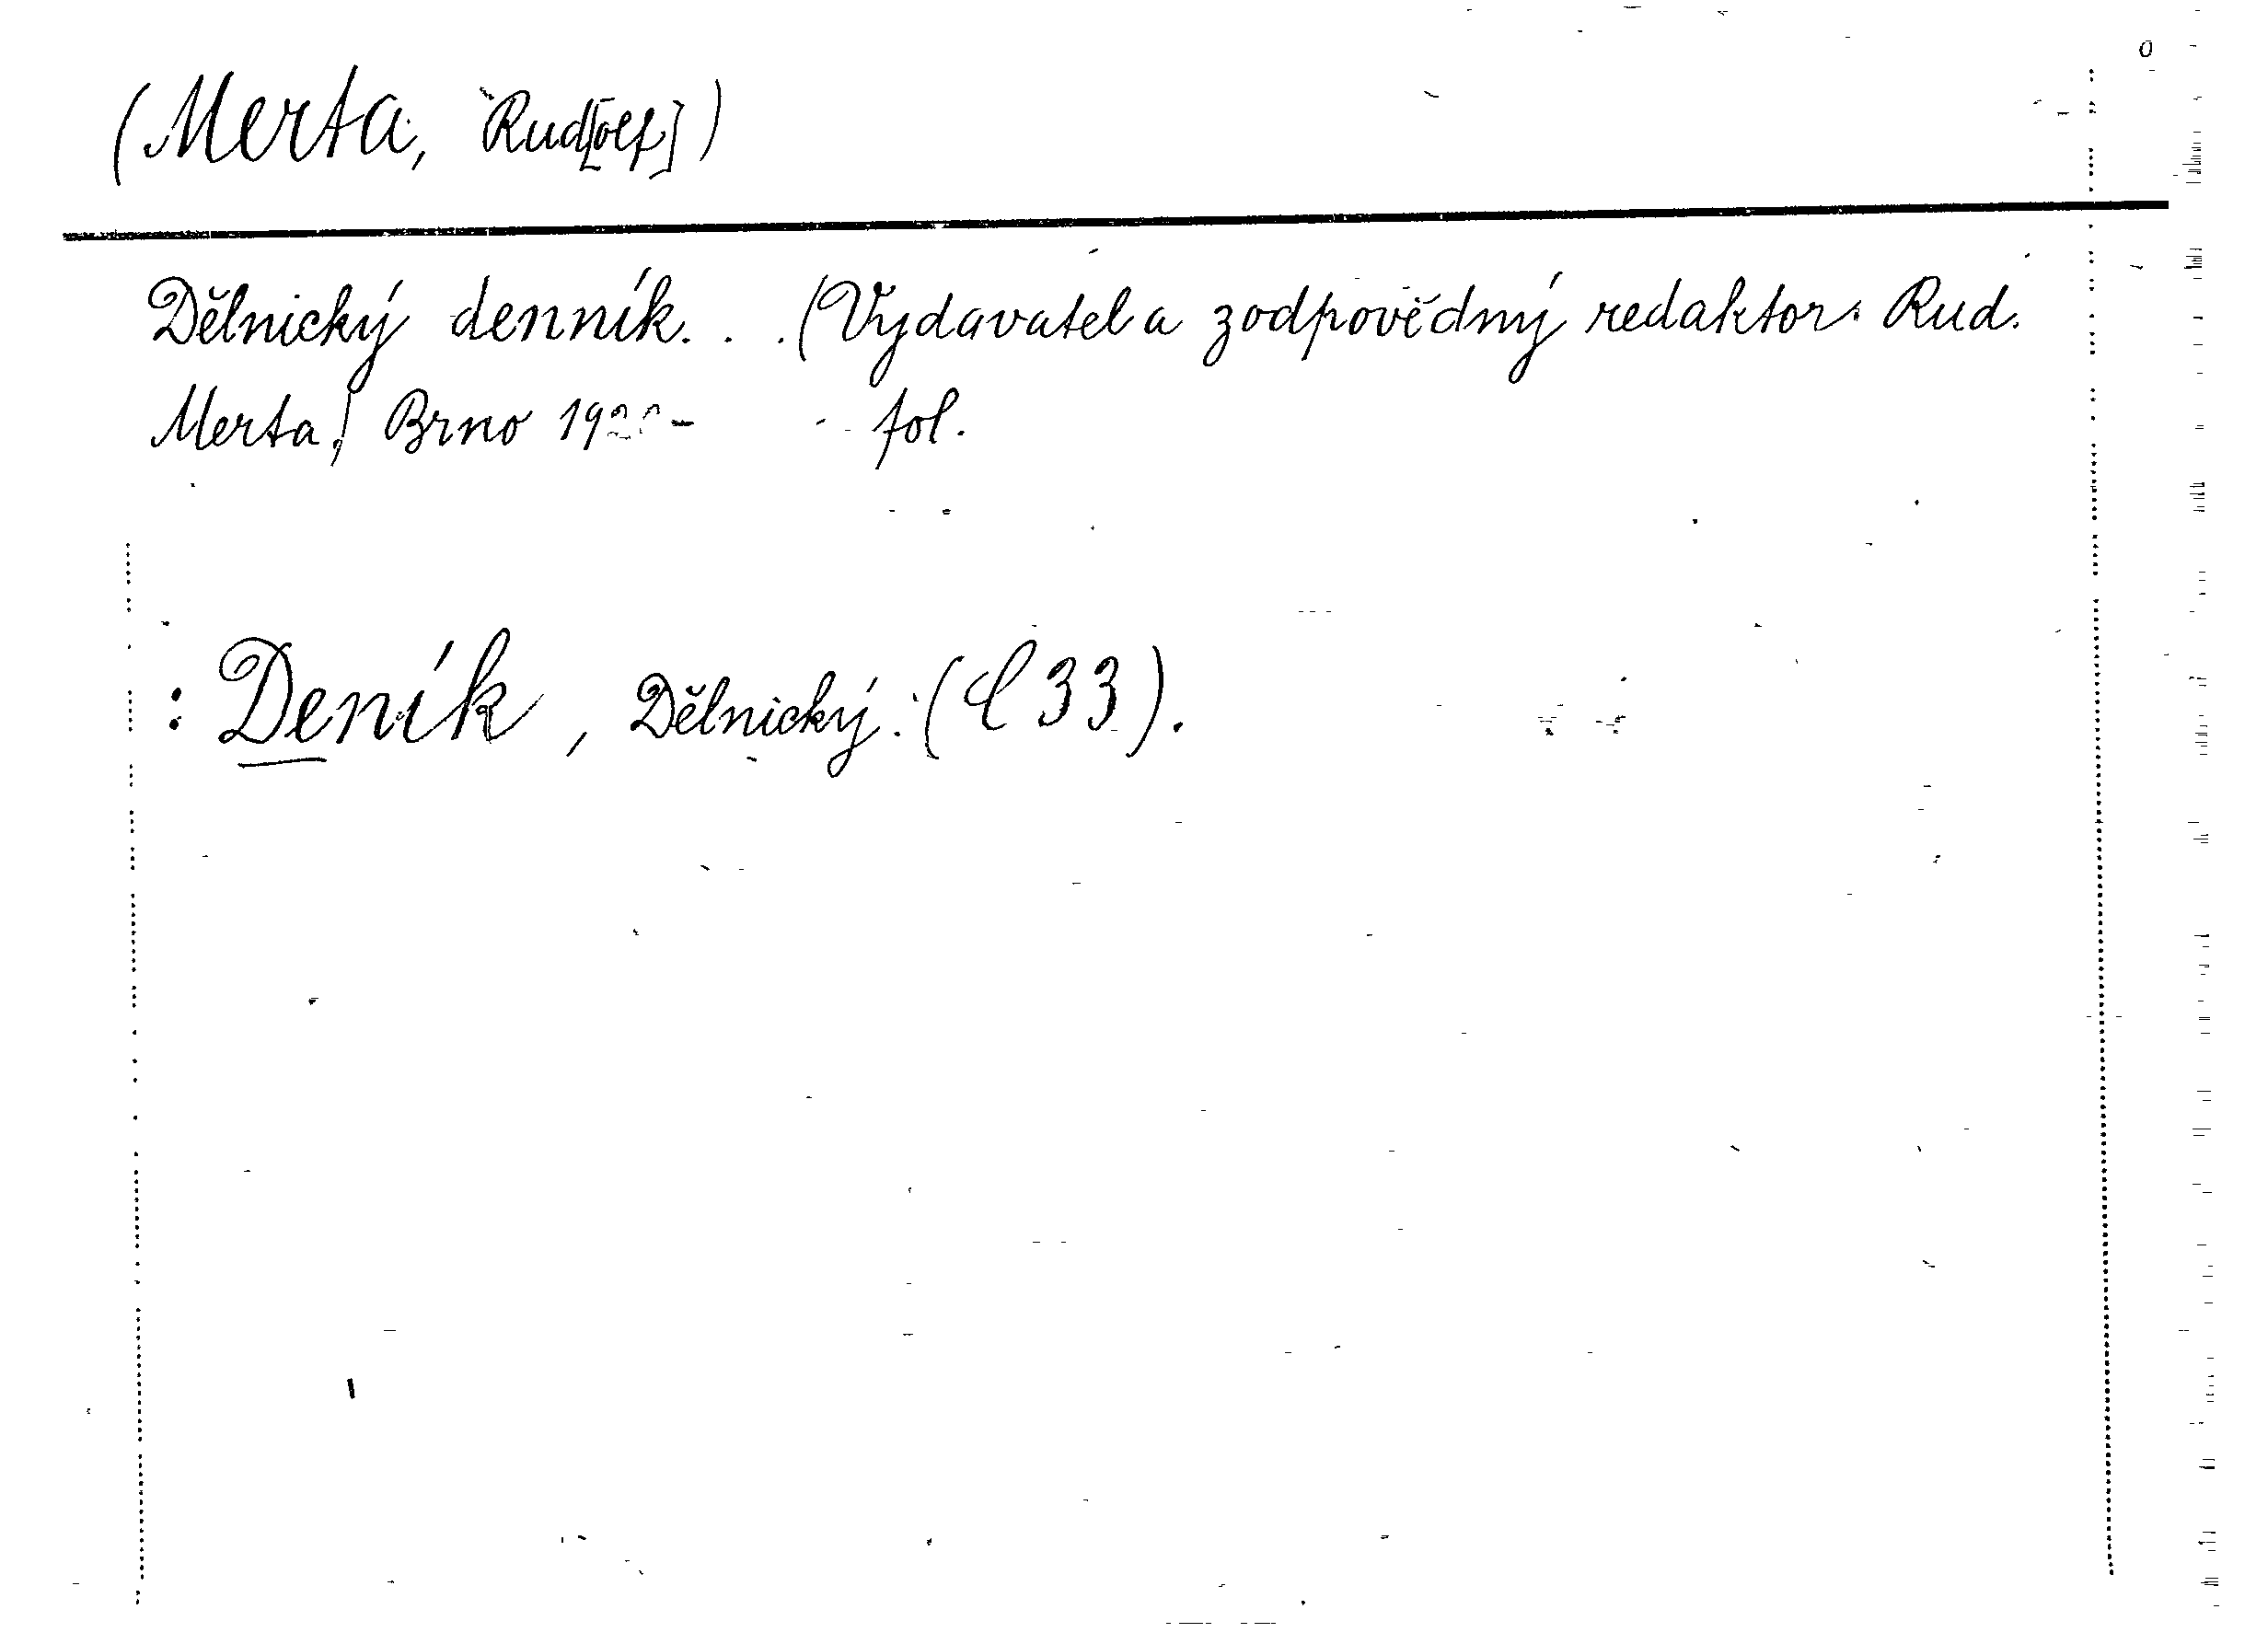 (Merta, Rud[olf])
Dělnický denník. . . (Vydavatel a zodpovědný redaktor: Rud.
Merta,) Brno - fol.
: Deník, Dělnický: (C 33).